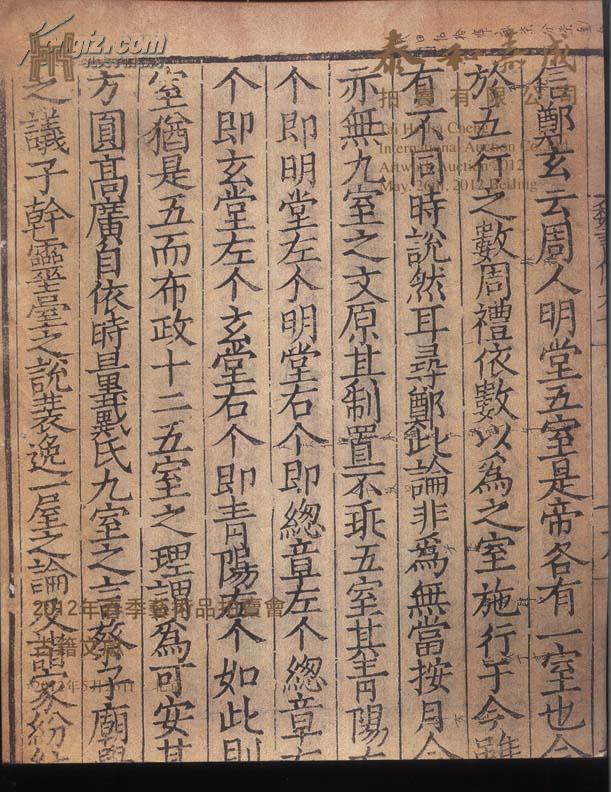 信鄭玄云周人明堂五室是帝各有一室也合
於五行之數周禮依數以為之室施行于今雖
有不同時說然耳尋鄭此論非為無當按月令
亦無九室之文原其制置不乖五室其青陽右
个即明堂左个明堂右个即總章左个總章右
个即玄堂左个玄堂右个即青陽左个如此則
室猶是五而布政十二五室之理謂為可安其
方圓高廣自依時量戴氏九室之言蔡子廟學
之議子幹靈臺之說裴逸一屋之論及諸家紛紜
gjz.com
泰和嘉成
拍賣有限公司
Tai He Jia Cheng
International Auction Co., Ltd
Artwork Auction 2012
May. 26th, 2012 Beijing
2012年春季藝術品拍賣會
古籍文獻